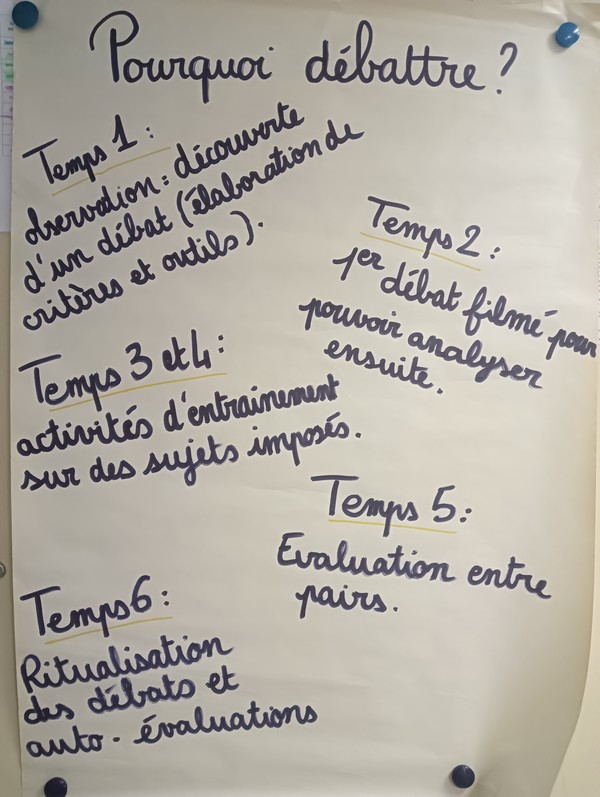 Pourquoi débattre ?
Temps 1 :
observation : découverte
d'un débat (élaboration de
critères et outils).
Temps 2 :
1er débat filmé pour
pouvoir analyser
ensuite.
Temps 3 et 4 :
activités d'entrainement
sur des sujets imposés.
Temps 5 :
Evaluation entre
pairs.
Temps 6 :
Ritualisation
des débats et
auto-évaluations